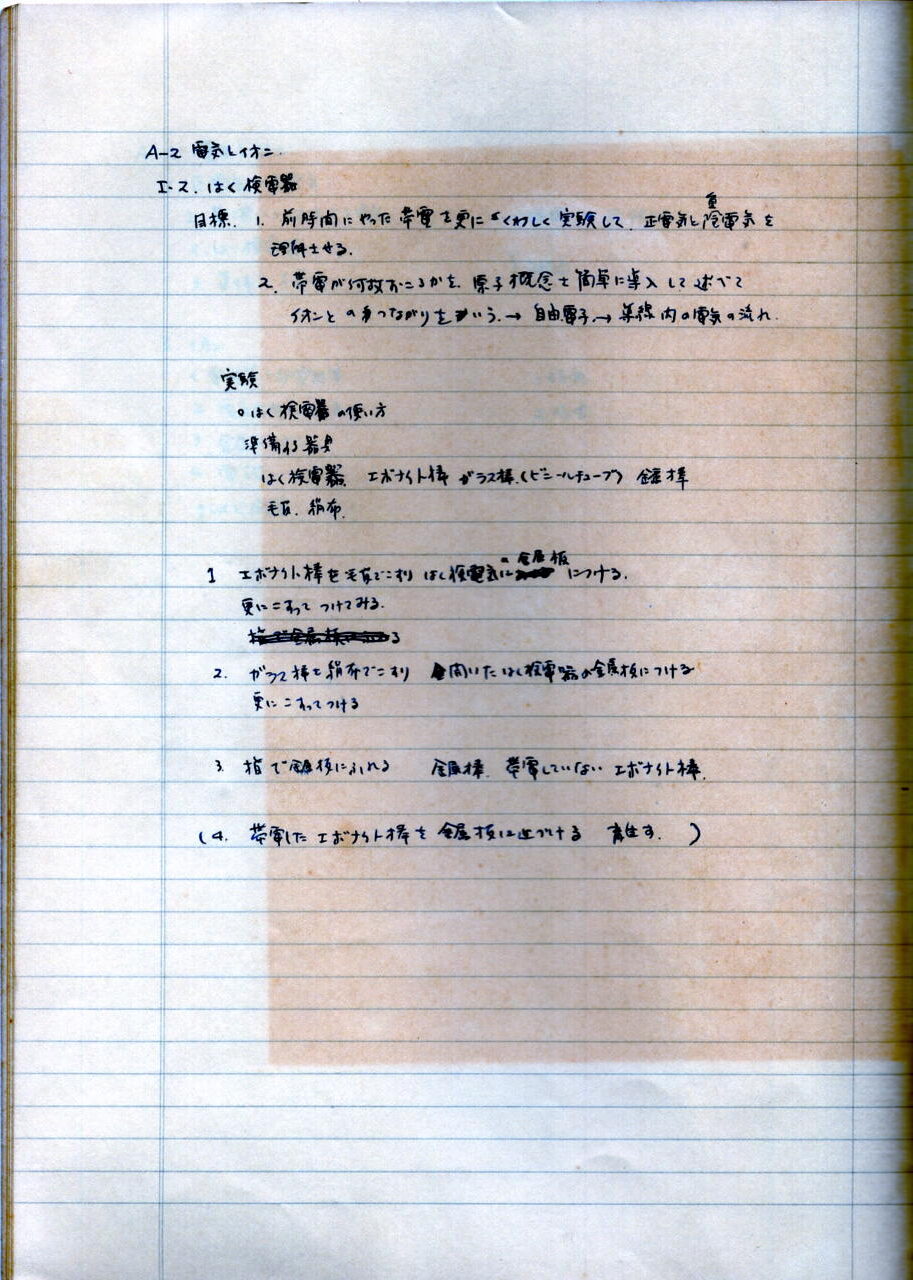 A-2 電気とイオン.
I-2. はく検電器
目標. 1. 前時間にやった帯電を更にくわしく実験して、正電気と陰電気を
理解させる.
2. 帯電が何故おこるかを、原子概念を簡単に導入して述べて
イオンとのつながりをいう. → 自由電子. → 導線内の電気の流れ.
実験
○はく検電器の使い方
準備する器具
はく検電器、エボナイト棒 ガラス棒.(ビニールチューブ) 金属棒
毛皮、絹布.
1 エボナイト棒を毛皮でこすり はく検電気の金属板につける.
更にこすってつけてみる.
2. ガラス棒を絹布でこすり 開いたはく検電器の金属板につける
更にこすってつける
3. 指で金属板にふれる 金属棒、帯電していないエボナイト棒.
(4. 帯電したエボナイト棒を金属板に近づける )